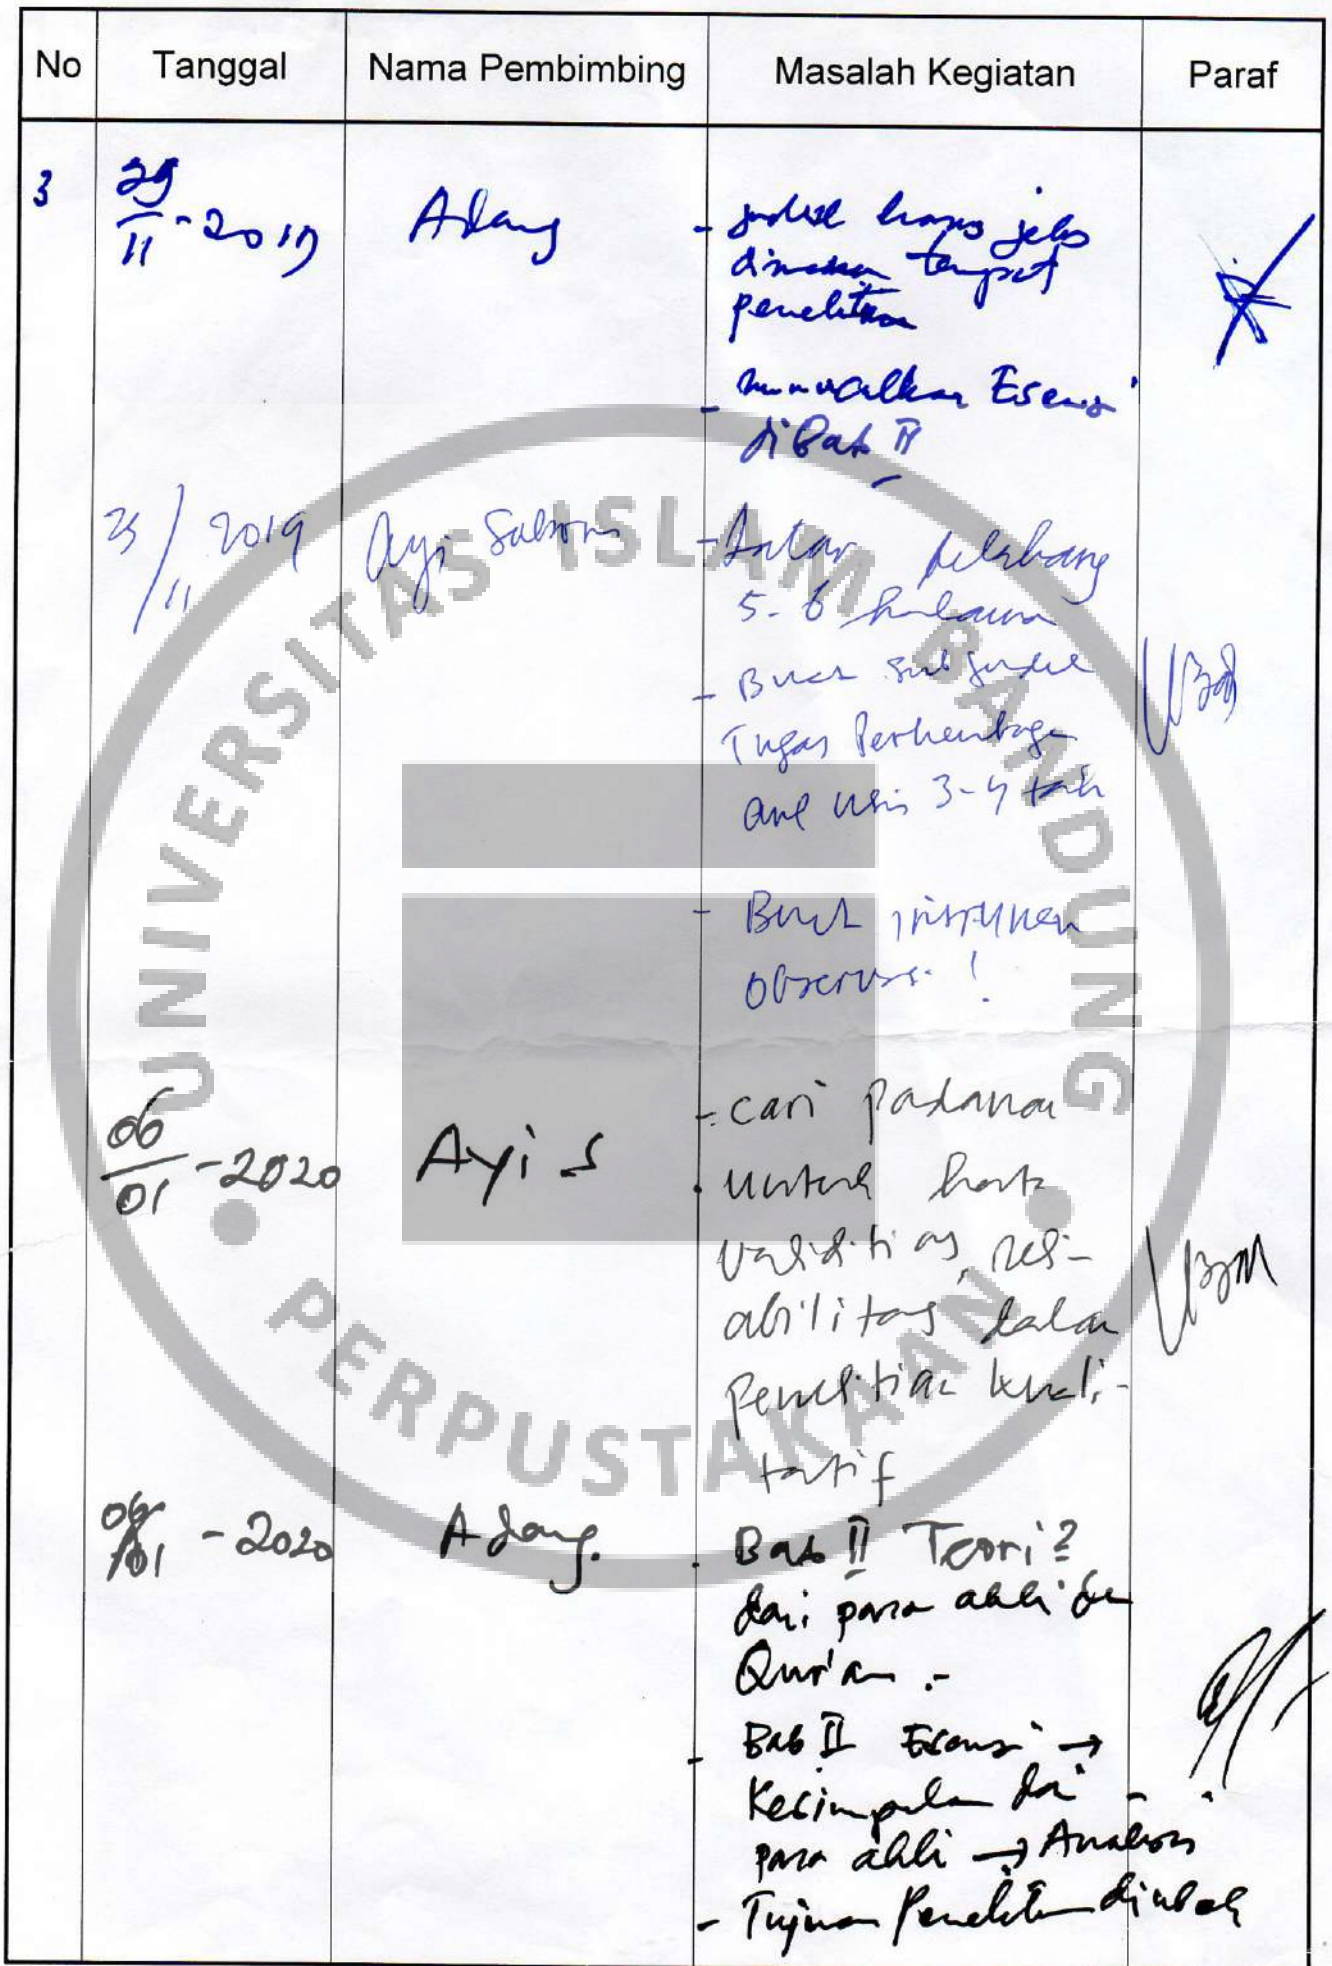 No Tanggal Nama Pembimbing Masalah Kegiatan Paraf
3 29/11 - 2019 Adang - judul harus jelas
dimana tempat
penelitian
- memunculkan Esensi
di Bab II
25/11 2019 Ayi Sobarna - Latar belakang
5-6 halaman
- Buat sub judul
Tugas Perkembangan
anak usia 3-4 tahun
- Buat instrumen
observasi !
06/01 - 2020 Ayi S - cari padanan
untuk kata
validitas, reli-
abilitas dalam
penelitian kuali-
tatif
06/01 - 2020 Adang. - Bab II Teori ?
dari para ahli dan
Qur'an .-
- Bab II Esensi →
Kesimpulan dari
para ahli → Analisis
- Tujuan Penelitian diubah
UNIVERSITAS ISLAM BANDUNG
PERPUSTAKAAN